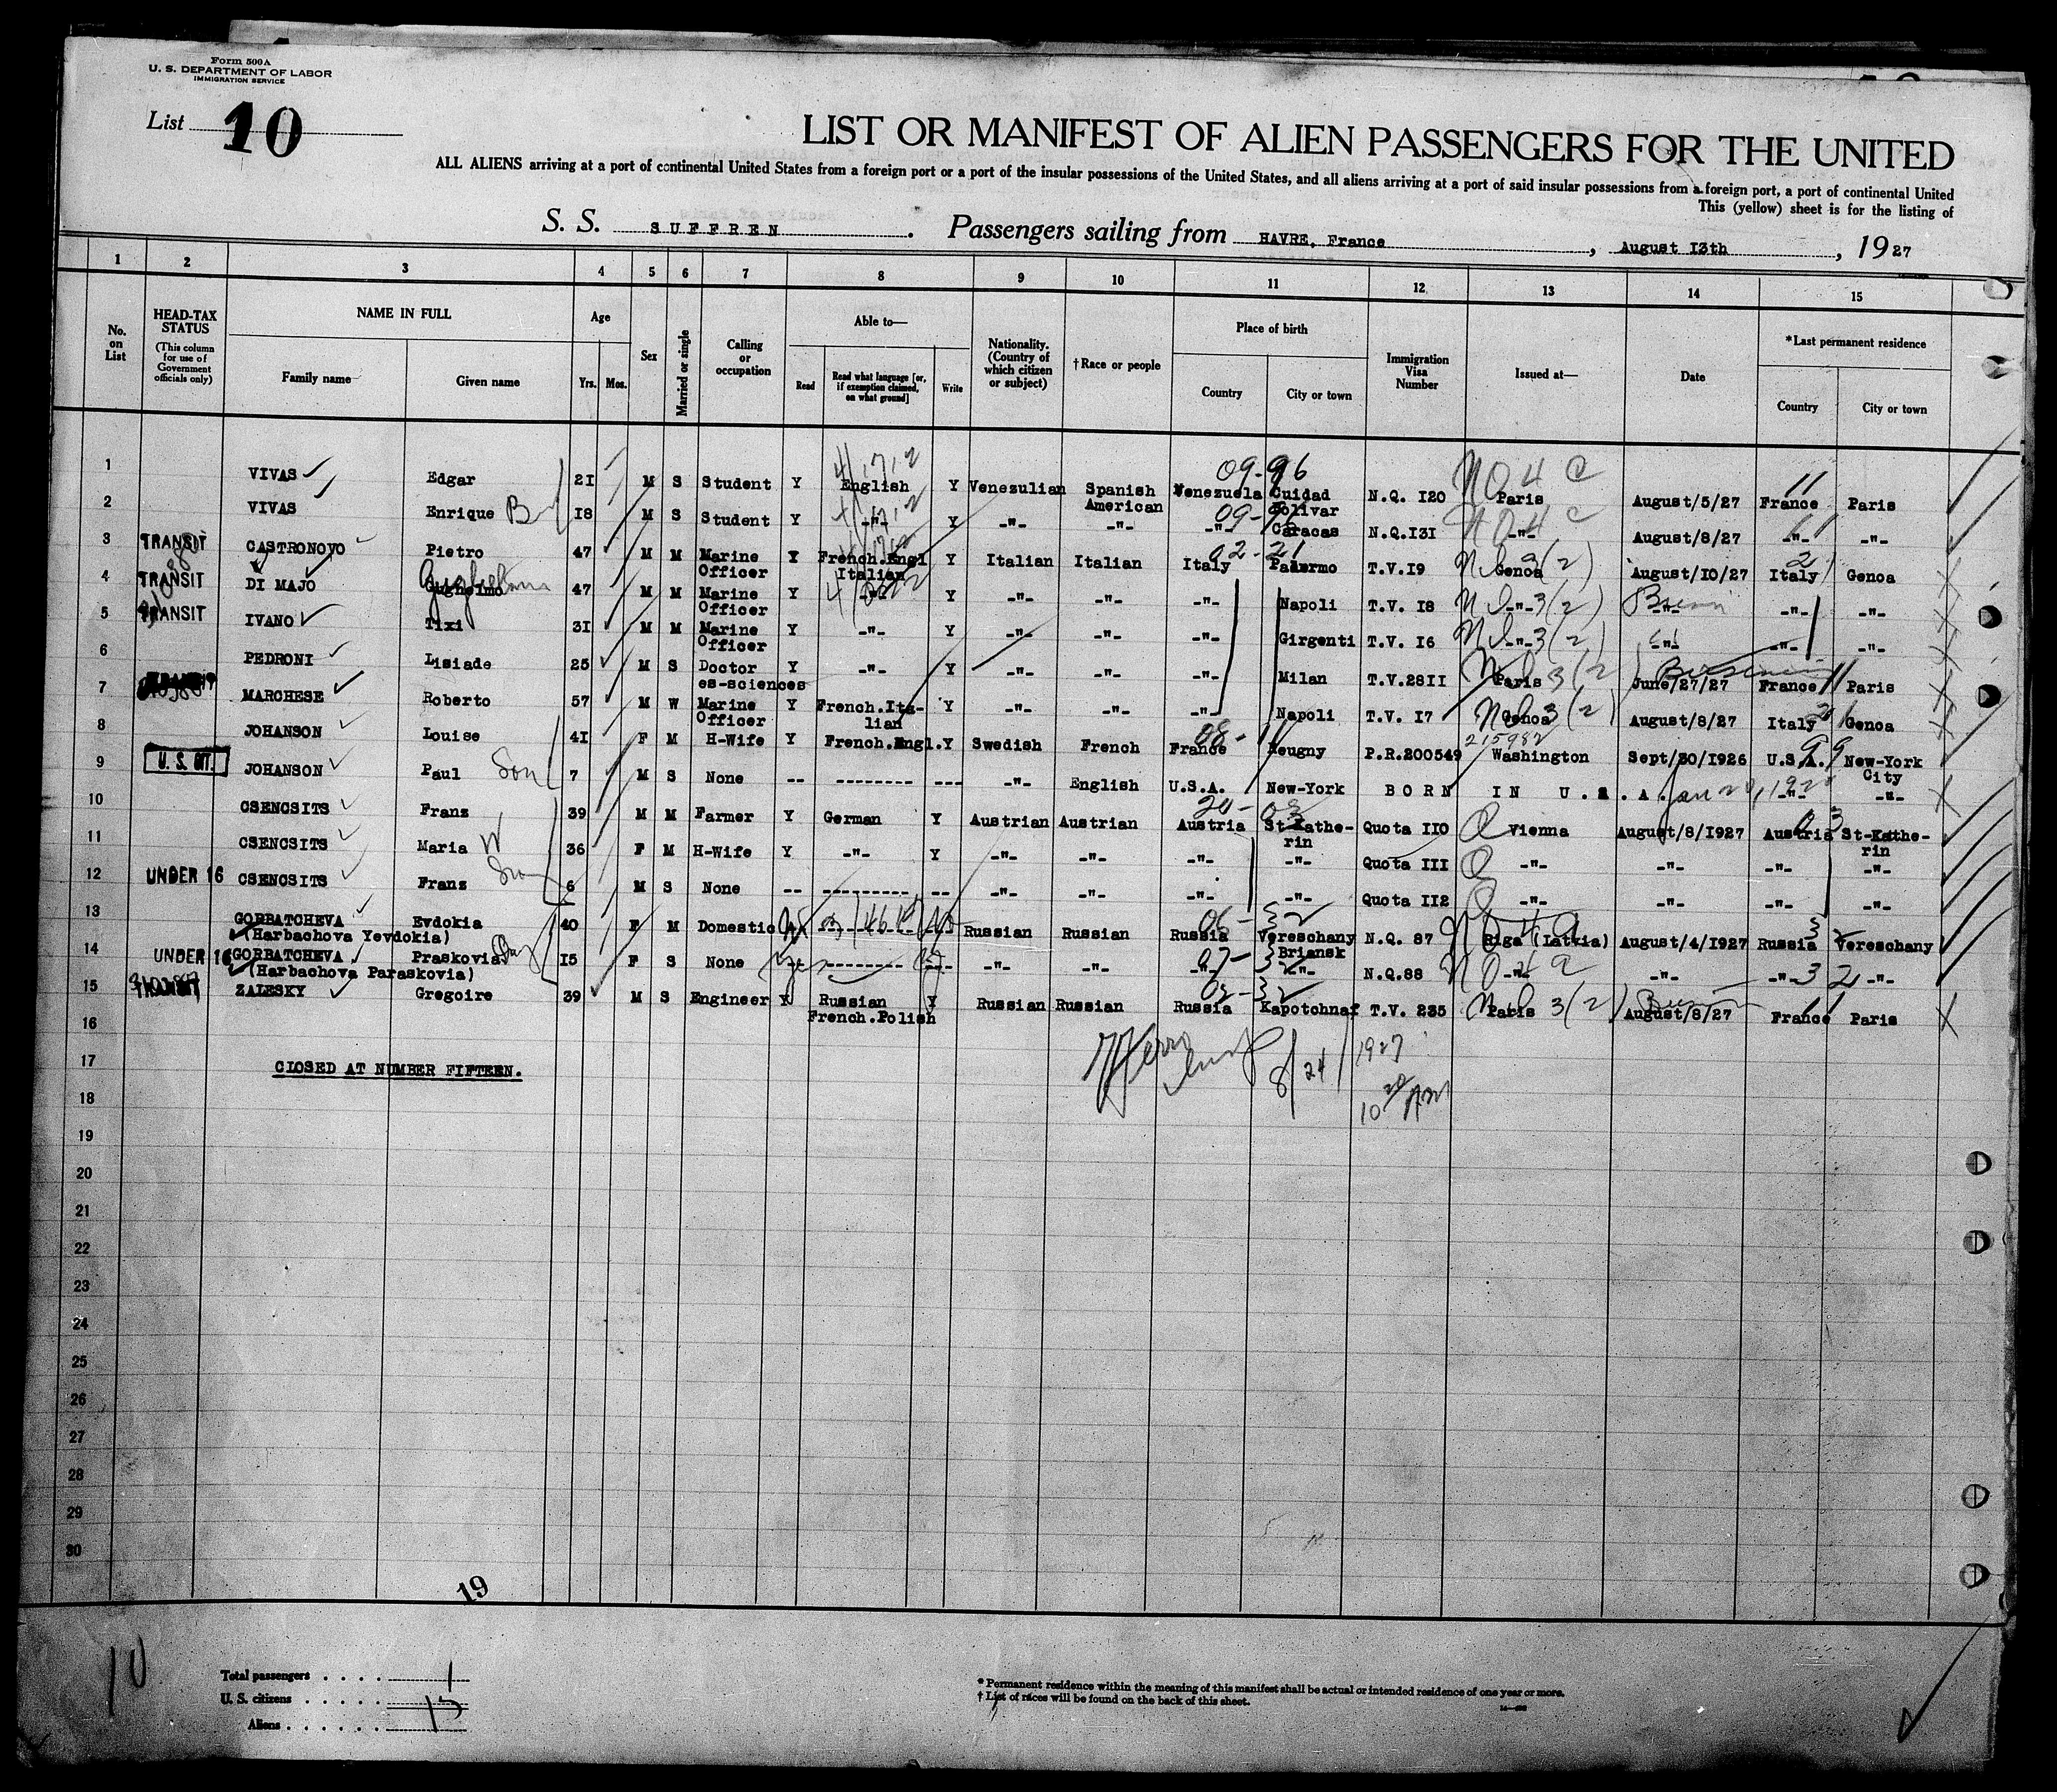 Form 500A
U. S. DEPARTMENT OF LABOR
IMMIGRATION SERVICE
List 10
LIST OR MANIFEST OF ALIEN PASSENGERS FOR THE UNITED
ALL ALIENS arriving at a port of continental United States from a foreign port or a port of the insular possessions of the United States, and all aliens arriving at a port of said insular possessions from a foreign port, a port of continental United
This (yellow) sheet is for the listing of
S. S. SUFFREN. Passengers sailing from HAVRE, France, August 13th, 1927
1 2 3 4 5 6 7 8 9 10 11 12 13 14 15
No. on List
HEAD-TAX STATUS (This column for use of Government officials only)
NAME IN FULL
Family name Given name
Age
Yrs. Mos.
Sex
Married or single
Calling or occupation
Able to—
Read Read what language [or, if exemption claimed, on what ground] Write
Nationality. (Country of which citizen or subject)
†Race or people
Place of birth
Country City or town
Immigration Visa Number
Issued at—
Date
*Last permanent residence
Country City or town
1 VIVAS Edgar 21 M S Student Y English Y Venezulian Spanish American Venezuela Cuidad Bolivar N.Q. I20 Paris August/5/27 France Paris
2 VIVAS Enrique 18 M S Student Y -"- Y -"- -"- -"- Caracas N.Q.I31 -"- August/8/27 -"-
3 TRANSIT CASTRONOVO Pietro 47 M M Marine Officer Y French.Engl Italian Y Italian Italian Italy Palermo T.V.I9 Genoa August/10/27 Italy Genoa
4 TRANSIT DI MAJO Guglielmo 47 M M Marine Officer Y -"- Y -"- -"- -"- Napoli T.V. I8 -"- -"- -"- -"-
5 TRANSIT IVANO Tixi 31 M M Marine Officer Y -"- Y -"- -"- -"- Girgenti T.V. I6 -"- -"- -"- -"-
6 PEDRONI Lisiade 25 M S Doctor es-sciences Y -"- Y -"- -"- -"- Milan T.V.28II Paris June/27/27 France Paris
7 MARCHESE Roberto 57 M W Marine Officer Y French.Italian Y -"- -"- -"- Napoli T.V. I7 Genoa August/8/27 Italy Genoa
8 JOHANSON Louise 41 F M H-Wife Y French.Engl. Y Swedish French France Neugny P.R.200549 215982 Washington Sept/30/1926 U.S.A. New-York City
9 U.S. CIT. JOHANSON Paul Son 7 M S None -- -------- --- -"- English U.S.A. New-York BORN IN U.S.A. -"- -"-
10 CSENCSITS Franz 39 M M Farmer Y German Y Austrian Austrian Austria St-Kathe-rin Quota II0 Vienna August/8/1927 Austria St-Kathe-rin
11 CSENCSITS Maria W 36 F M H-Wife Y -"- Y -"- -"- -"- -"- Quota III -"- -"- -"- -"-
12 UNDER 16 CSENCSITS Franz Son 6 M S None -- --------- -- -"- -"- -"- -"- Quota II2 -"- -"- -"- -"-
13 GORBATCHEVA (Harbachova Yevdokia) Evdokia 40 F M Domestic Russian Russian Russia Vereschany Briansk N.Q. 87 Riga (Latvia) August/4/1927 Russia Vereschany
14 UNDER 16 GORBATCHEVA (Harbachova Paraskovia) Praskovia 15 F S None -- -------- --- -"- -"- -"- -"- N.Q.88 -"- -"- -"- -"-
15 ZALESKY Gregoire 39 M S Engineer Y Russian French.Polish Y Russian Russian Russia Kapotchnaf T.V. 235 Paris August/8/27 France Paris
16
17 CLOSED AT NUMBER FIFTEEN.
8/24/1927
10 20 AM
18
19
20
21
22
23
24
25
26
27
28
29
30
19
10
Total passengers . . . . 1
U. S. citizens . . . . .
Aliens . . . . . .
* Permanent residence within the meaning of this manifest shall be actual or intended residence of one year or more.
† List of races will be found on the back of this sheet.